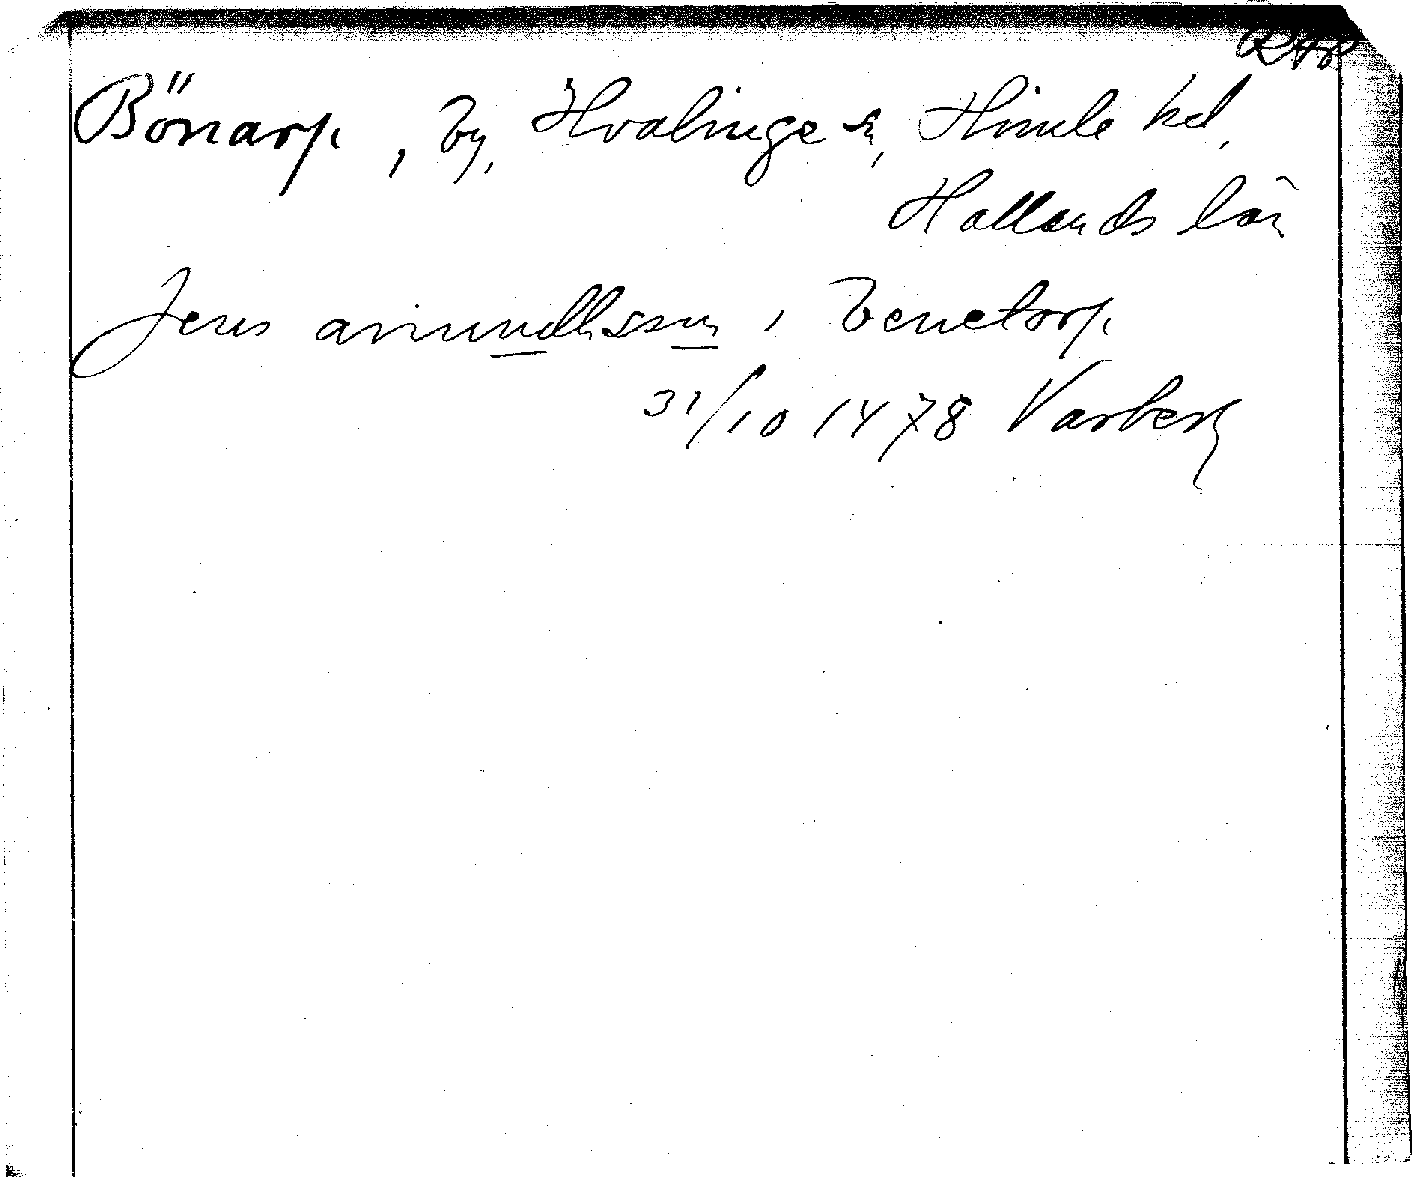 RAp
Bönarp, by, Hvalinge sn, Himle hd,
Hallands län
Jens amundhssun i benetorp
31/10 1478 Varberg